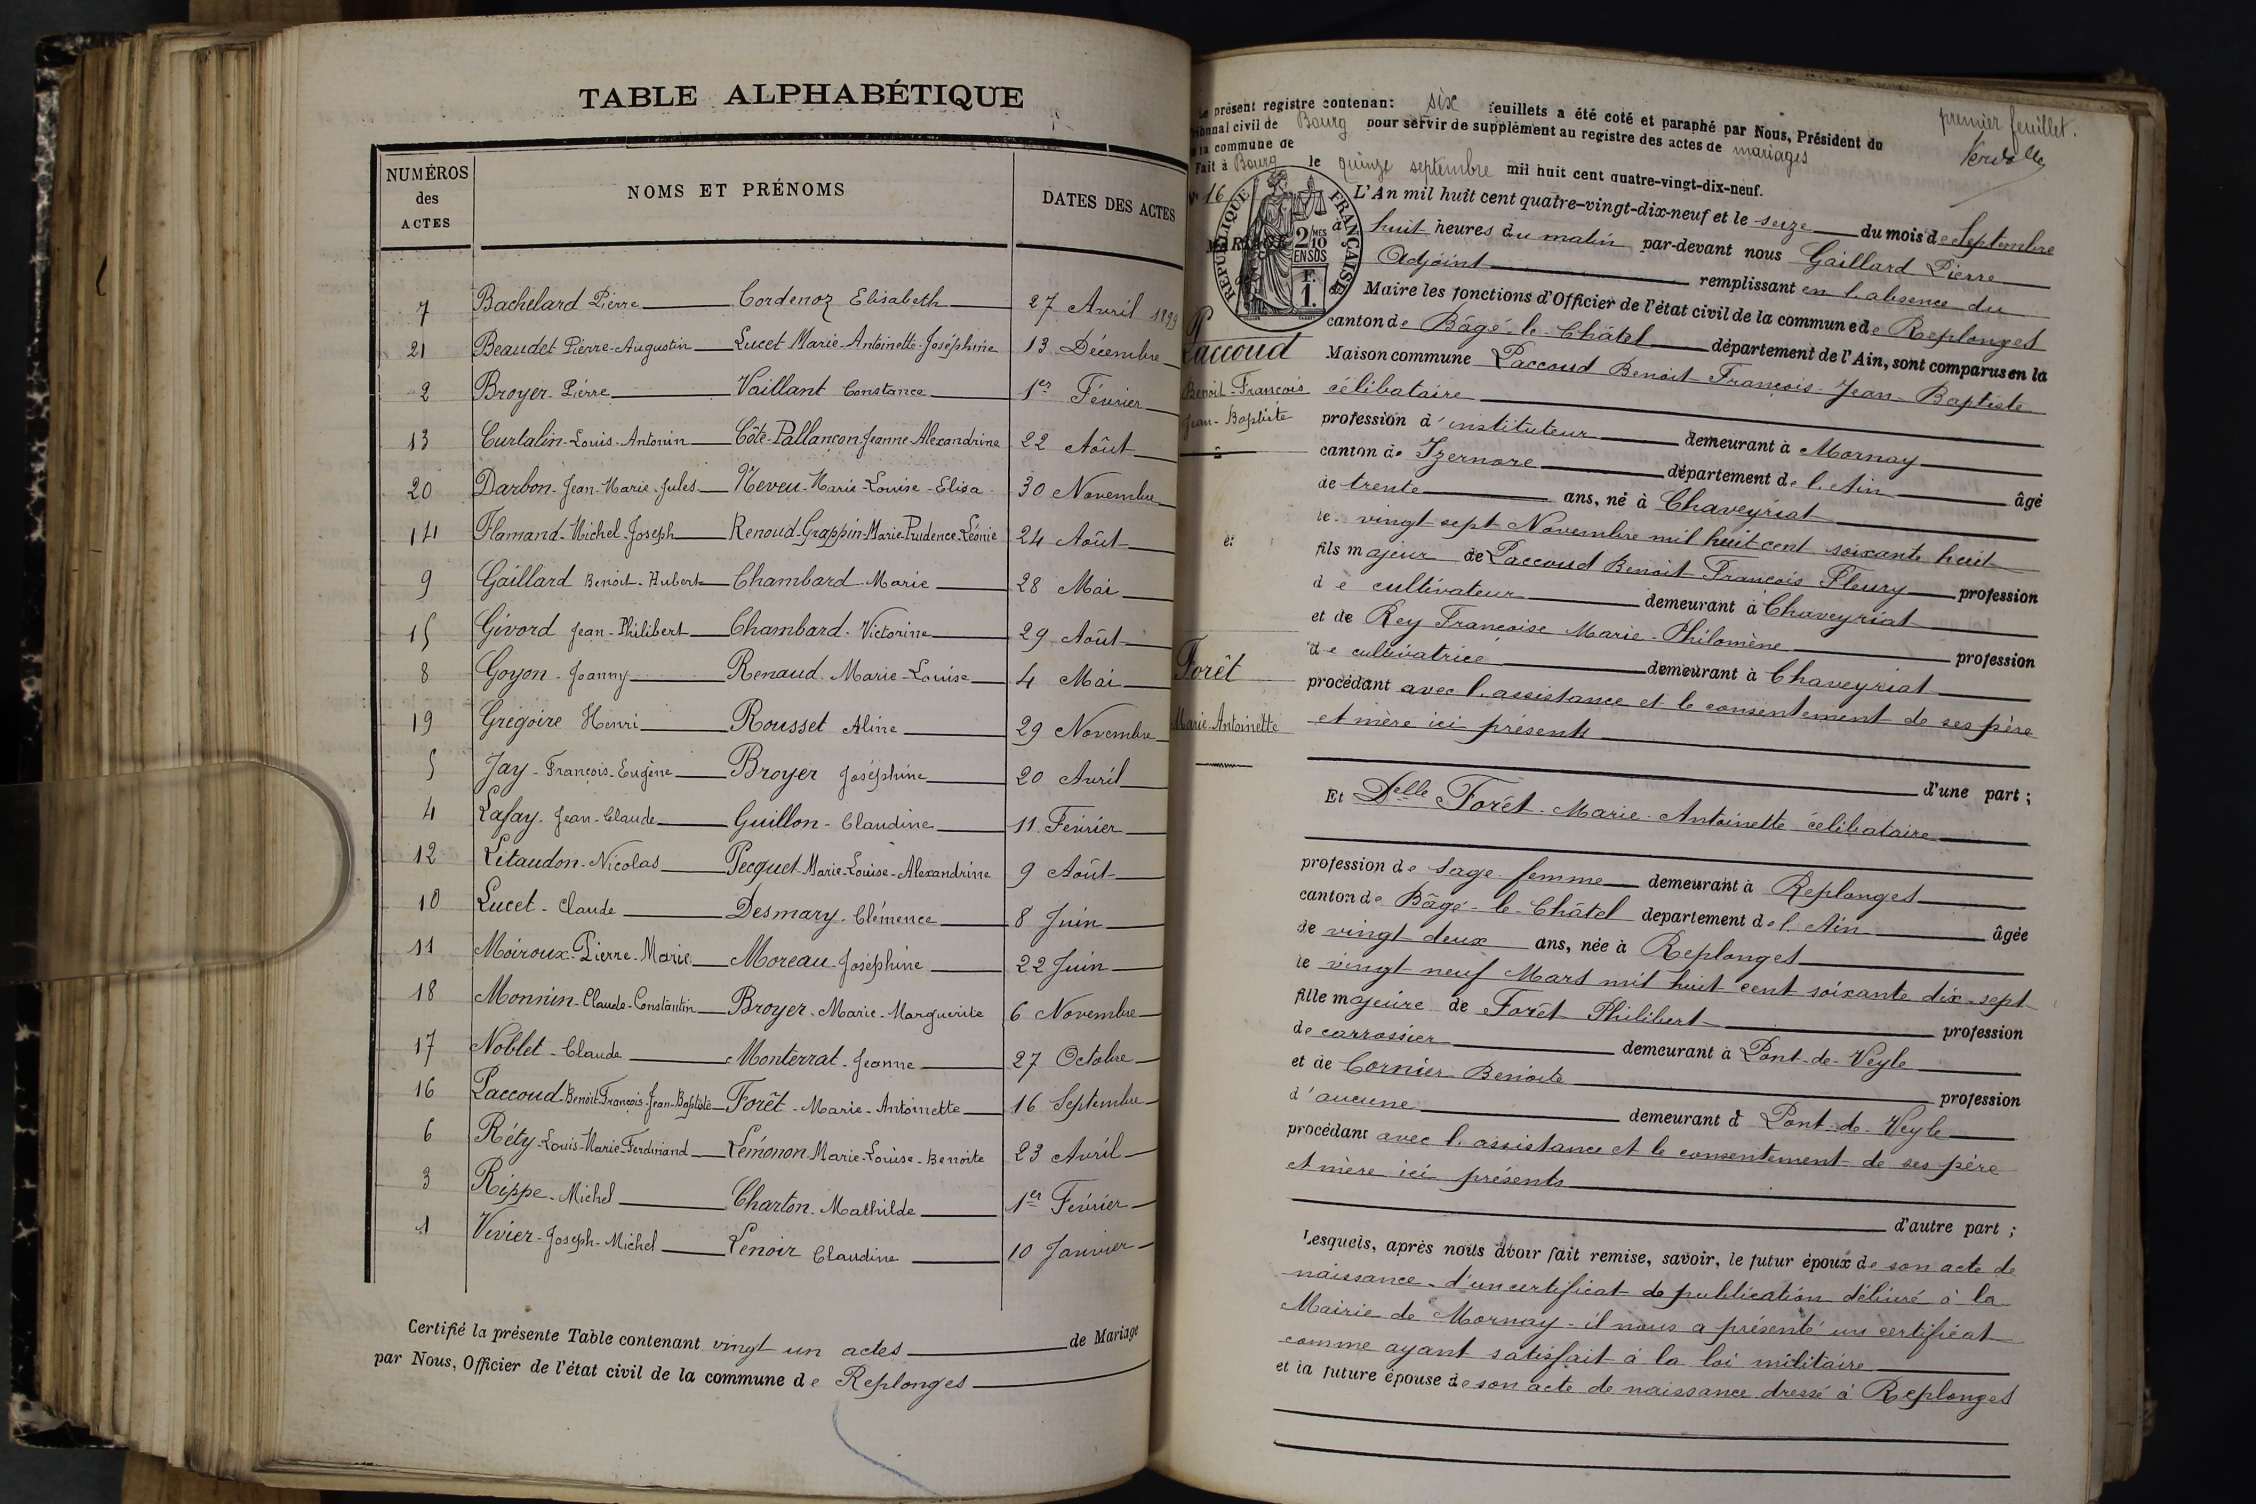 TABLE ALPHABÉTIQUE
NUMÉROS des ACTES
NOMS ET PRÉNOMS
DATES DES ACTES
7 Bachelard Pierre Cordenoz Elisabeth 27 Avril 1899
21 Beaudet Pierre-Augustin Lucet Marie-Antoinette-Joséphine 13 Décembre
2 Broyer Pierre Vaillant Constance 1er Février
13 Curtalin-Louis-Antonin Côte-Pallançon Jeanne-Alexandrine 22 Août
20 Darbon-Jean-Marie-Jules Neveu-Marie-Louise-Elisa 30 Novembre
14 Flamand-Michel-Joseph Renoud-Grappin-Marie-Prudence-Léonie 24 Août
9 Gaillard Benoit-Hubert Chambard-Marie 28 Mai
15 Givord Jean-Philibert Chambard-Victorine 29 Août
8 Goyon-Joanny Renaud Marie-Louise 4 Mai
19 Grégoire Henri Rousset Aline 29 Novembre
5 Jay-François-Eugène Broyer Joséphine 20 Avril
4 Lafay-Jean-Claude Guillon-Claudine 11 Février
12 Litaudon-Nicolas Pecquet-Marie-Louise-Alexandrine 9 Août
10 Lucet-Claude Desmary-Clémence 8 Juin
11 Moiroux-Pierre-Marie Moreau-Joséphine 22 Juin
18 Monnin-Claude-Constantin Broyer-Marie-Marguerite 6 Novembre
17 Noblet-Claude Monterrat-Jeanne 27 Octobre
16 Paccoud-Benoit-François-Jean-Baptiste Forêt-Marie-Antoinette 16 Septembre
6 Réty-Louis-Marie-Ferdinand Lémonon Marie-Louise-Benoite 23 Avril
3 Rippe-Michel Charton-Mathilde 1er Février
1 Vivier-Joseph-Michel Lenoir Claudine 10 Janvier
Certifié la présente Table contenant vingt un actes de Mariage
par Nous, Officier de l'état civil de la commune de Replonges
Le présent registre contenant six feuillets a été coté et paraphé par Nous, Président du
premier feuillet.
Tribunal civil de Bourg pour servir de supplément au registre des actes de mariages
de la commune de
Fait à Bourg le quinze septembre mil huit cent quatre-vingt-dix-neuf.
N° 16
MARIAGE
RÉPUBLIQUE FRANÇAISE
2/10 EN SUS
1 F.
Paccoud
Benoit-François
Jean-Baptiste
et
Forêt
Marie-Antoinette
L'An mil huit cent quatre-vingt-dix-neuf et le seize du mois de Septembre
à huit heures du matin par-devant nous Gaillard Pierre
Adjoint remplissant en l'absence du
Maire les fonctions d'Officier de l'état civil de la commune de Replonges
canton de Bâgé-le-Châtel département de l'Ain, sont comparus en la
Maison commune Paccoud Benoit-François-Jean-Baptiste
célibataire
profession d'instituteur demeurant à Mornay
canton de Izernore département de l'Ain âgé
de trente ans, né à Chaveyriat
le vingt-sept Novembre mil huit cent soixante huit
fils majeur de Paccoud Benoit François Fleury profession
de cultivateur demeurant à Chaveyriat
et de Rey Françoise Marie-Philomène profession
de cultivatrice demeurant à Chaveyriat
procédant avec l'assistance et le consentement de ses père
et mère ici présents
d'une part ;
Et Delle Forêt-Marie-Antoinette célibataire
profession de sage femme demeurant à Replonges
canton de Bâgé-le-Châtel département de l'Ain âgée
de vingt-deux ans, née à Replonges
le vingt-neuf Mars mil huit cent soixante dix-sept
fille majeure de Forêt Philibert profession
de carrossier demeurant à Pont-de-Veyle
et de Cornier Benoite profession
d'aucune demeurant à Pont-de-Veyle
procédant avec l'assistance et le consentement de ses père
et mère ici présents
d'autre part ;
Lesquels, après nous avoir fait remise, savoir, le futur époux de son acte de
naissance-d'un certificat de publication délivré à la
Mairie de Mornay-il nous a présenté un certificat
comme ayant satisfait à la loi militaire
et la future épouse de son acte de naissance dressé à Replonges